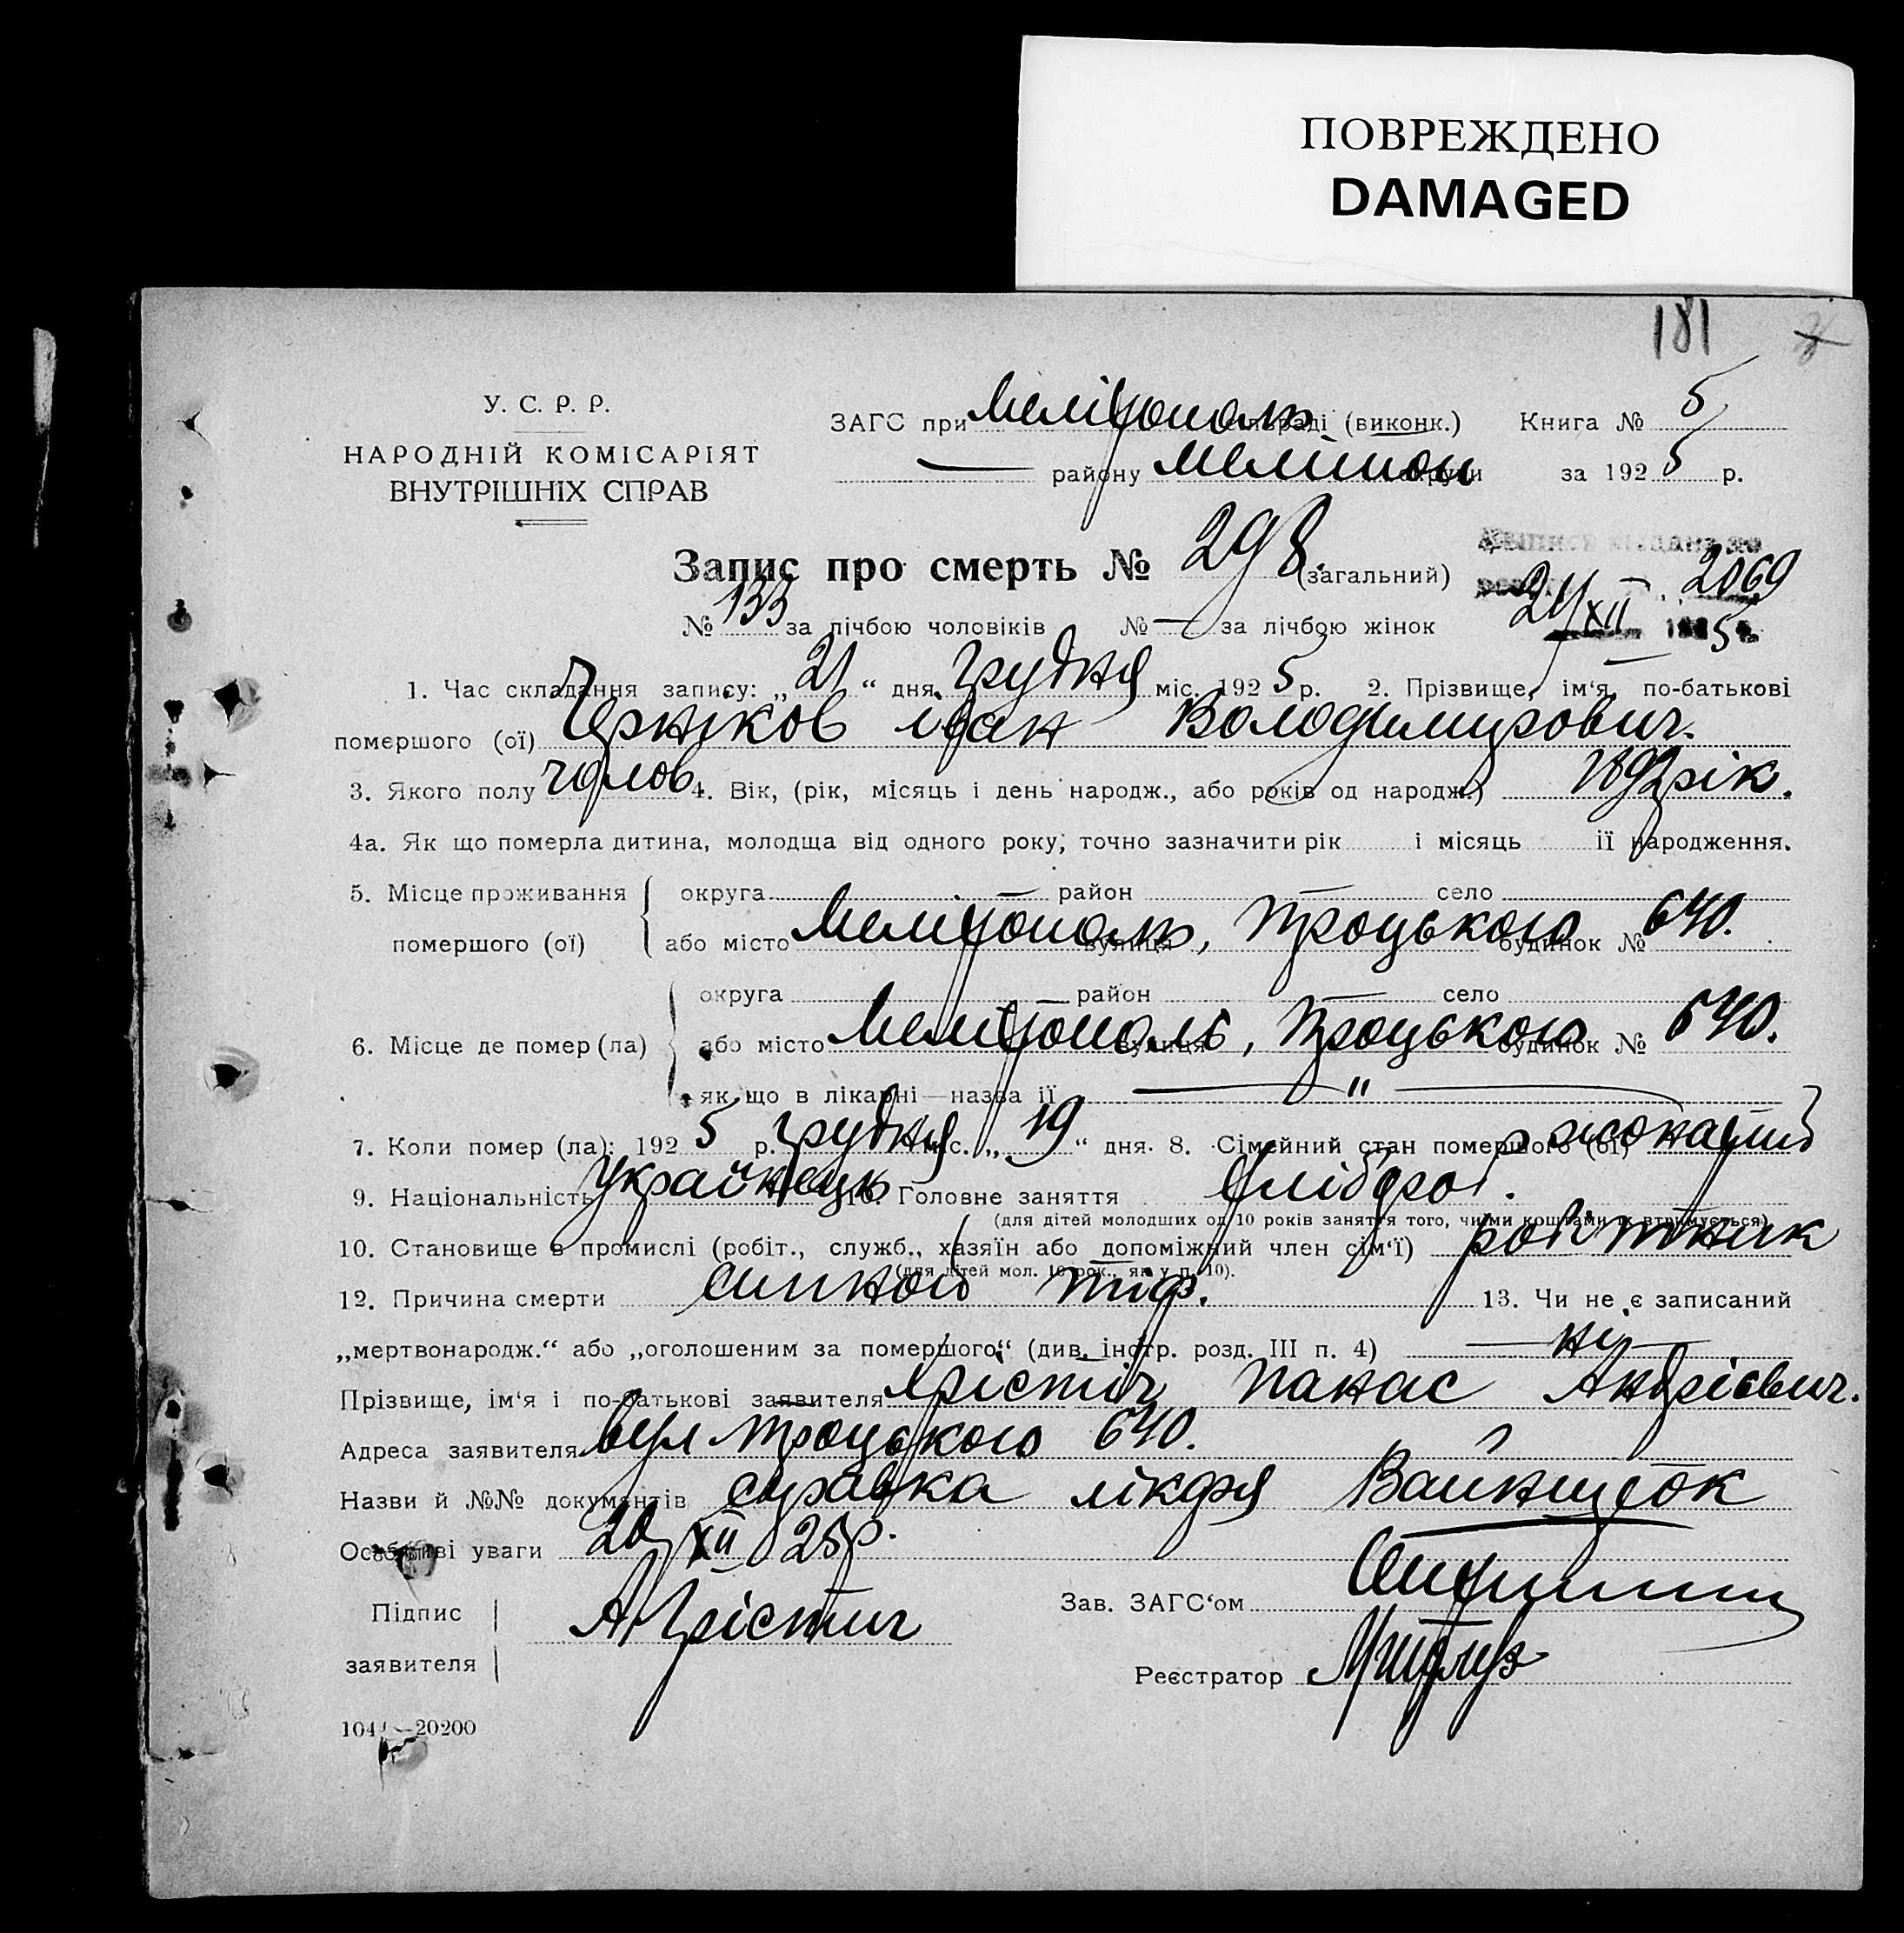 ПОВРЕЖДЕНО
DAMAGED
181
У. С. Р. Р.
НАРОДНІЙ КОМІСАРІЯТ
ВНУТРІШНІХ СПРАВ
ЗАГС при Мелітополь сільраді (виконк.) Книга № 5
— району Мелітоп округи за 1925 р.
Запис про смерть № 298. (загальний)
2069
24/XII 5
№ 133 за лічбою чоловіків № — за лічбою жінок
1. Час складання запису: „21“ дня грудня міс. 1925 р. 2. Прізвище, ім‘я, по-батькові
помершого (ої) Черніков Іван Володимирович.
3. Якого полу чолов 4. Вік, (рік, місяць і день народж., або років од народж.) 1892 рік.
4а. Як що померла дитина, молодща від одного року, точно зазначити рік і місяць її народження.
5. Місце проживання помершого (ої) округа — район — село
або місто Мелітополь, вулиця Троцького будинок № 640.
6. Місце де помер (ла) округа — район — село
або місто Мелітополь, вулиця Троцького будинок № 640.
як що в лікарні—назва її — „ —
7. Коли помер (ла): 1925 р. грудня міс. „19“ дня. 8. Сімейний стан помершого (ої) жонатий
9. Національність українець 10. Головне заняття хлібороб.
(для дітей молодших од 10 років заняття того, чиїми коштами їх втримується)
10. Становище в промислі (робіт., служб., хазяїн або допоміжний член сім‘ї) робітник
(для дітей мол. 10 рок., як у п. 10).
12. Причина смерти сипной тиф. 13. Чи не є записаний
„мертвонародж.“ або „оголошеним за помершого“ (див. інстр. розд. III п. 4) — ні —
Прізвище, ім‘я і по-батькові заявителя Хрістіч Панас Андрієвич.
Адреса заявителя вул Троцького 640.
Назви й №№ документів справка лікаря
Особливі уваги 20/XII 25 р.
Підпис заявителя А Хрістич
Зав. ЗАГС‘ом
Реєстратор
104 —20200